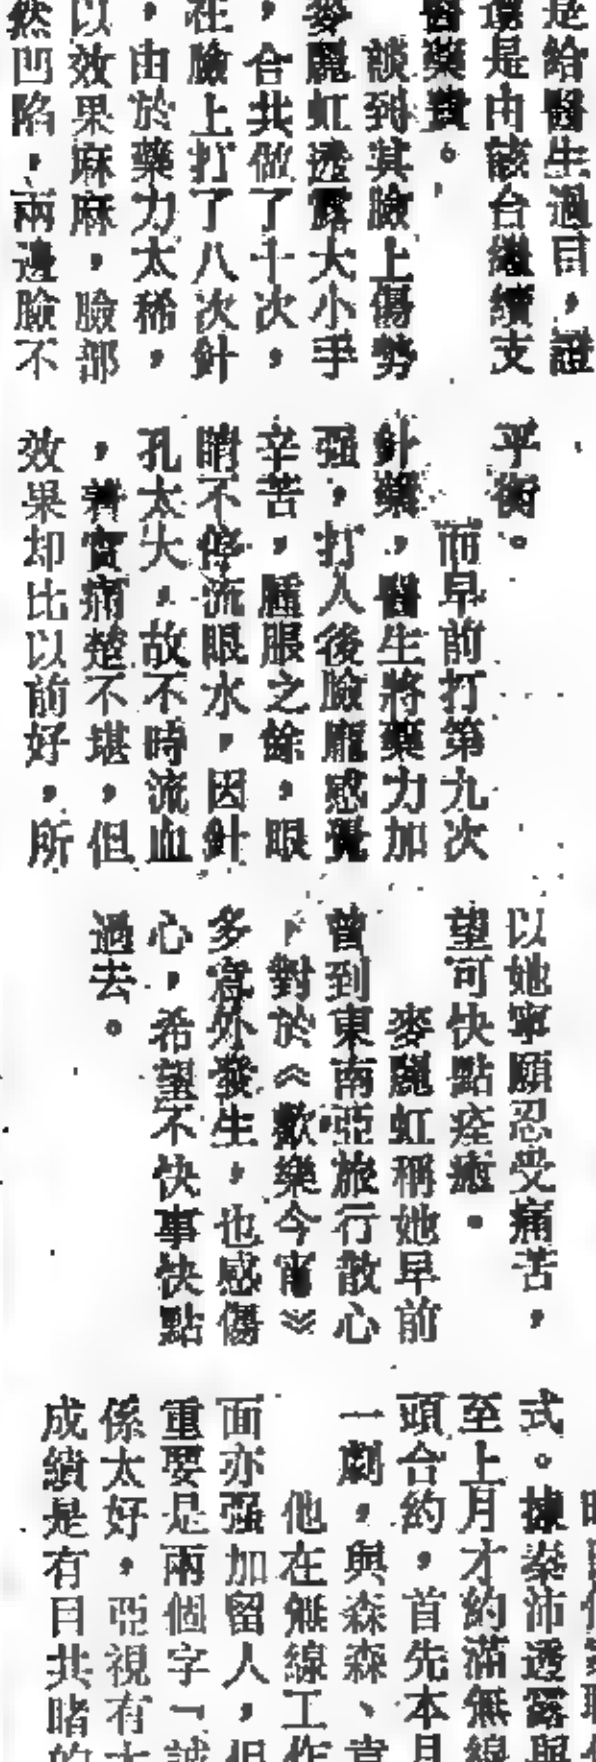 是給醫生過目，證
還是由該台繼續支
醫藥費。
談到其臉上傷勢
麥麗虹透露大小手
，合共做了十次，
在臉上打了八次針
，由於藥力太稀，
以效果麻麻，臉部
然凹陷，兩邊臉不
平衡。
而早前打第九次
針藥，醫生將藥力加
强，打入後臉龐感覺
辛苦，腫脹之餘，眼
睛不停流眼水，因針
孔太大，故不時流血
，着實痛楚不堪，但
效果却比以前好，所
以她寧願忍受痛苦，
望可快點痊癒。
麥麗虹稱她早前
曾到東南亞旅行散心
，對於《歡樂今宵》
多意外發生，也感傷
心，希望不快事快點
過去。
式。據秦沛透露與
至上月才約滿無線
頭合約，首先本月
一劇，與森森、
他在無線工作
面亦强加留人，但
重要是兩個字「誠
係太好，亞視有
成績是有目共睹的